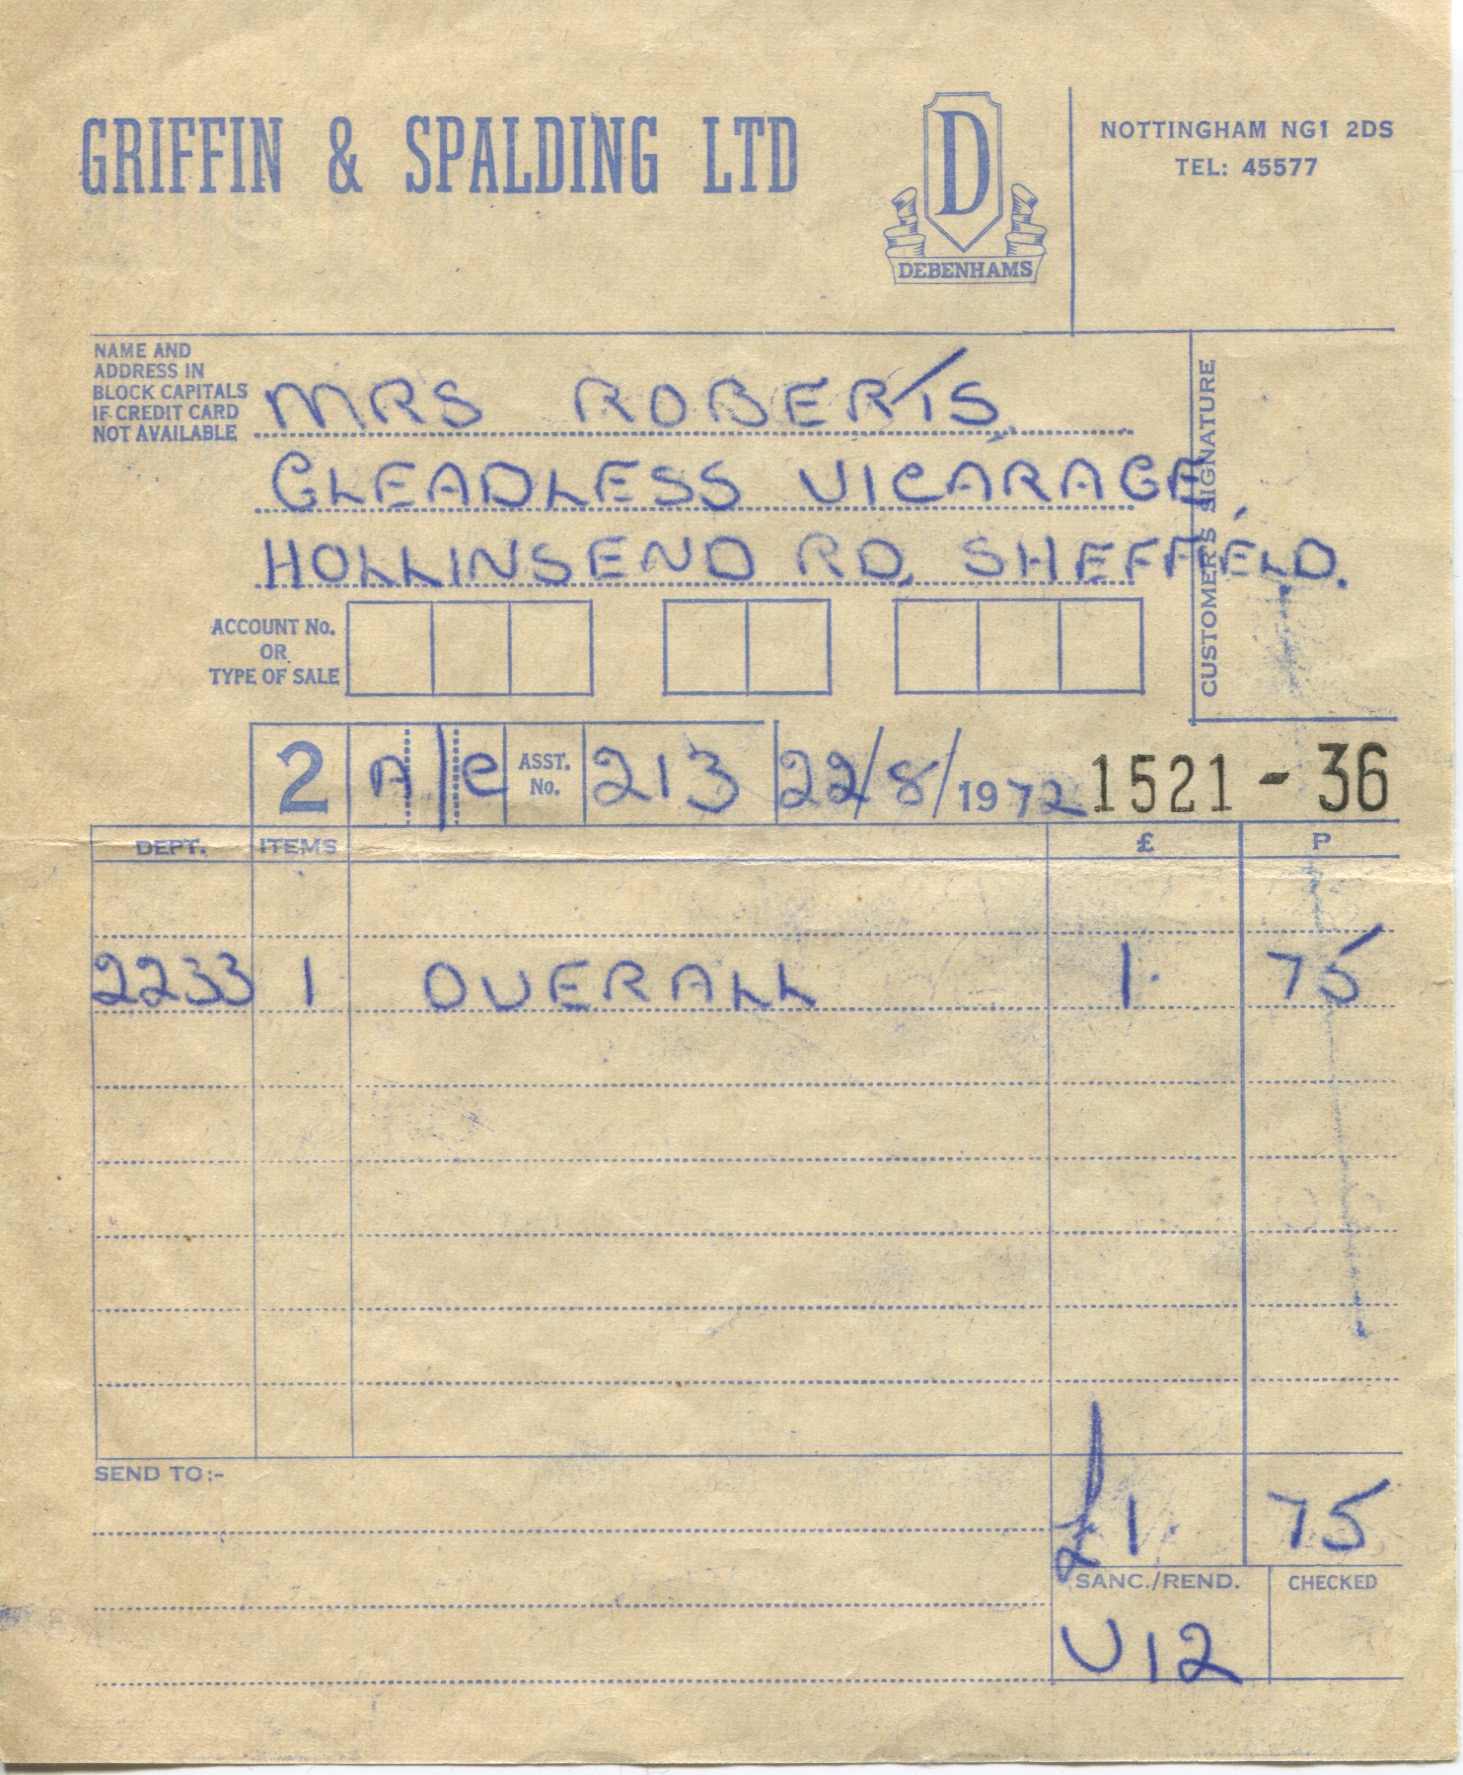 GRIFFIN & SPALDING LTD
D
DEBENHAMS
NOTTINGHAM NG1 2DS
TEL: 45577
NAME AND
ADDRESS IN
BLOCK CAPITALS
IF CREDIT CARD
NOT AVAILABLE
MRS ROBERTS,
GLEADLESS VICARAGE,
HOLLINSEND RD, SHEFFIELD.
CUSTOMER'S SIGNATURE
ACCOUNT No.
OR
TYPE OF SALE
2 A/C ASST. No. 213 22/8/1972 1521-36
DEPT. ITEMS £ P
2233 1 OVERALL 1. 75
SEND TO:-
£1. 75
SANC./REND. CHECKED
U12